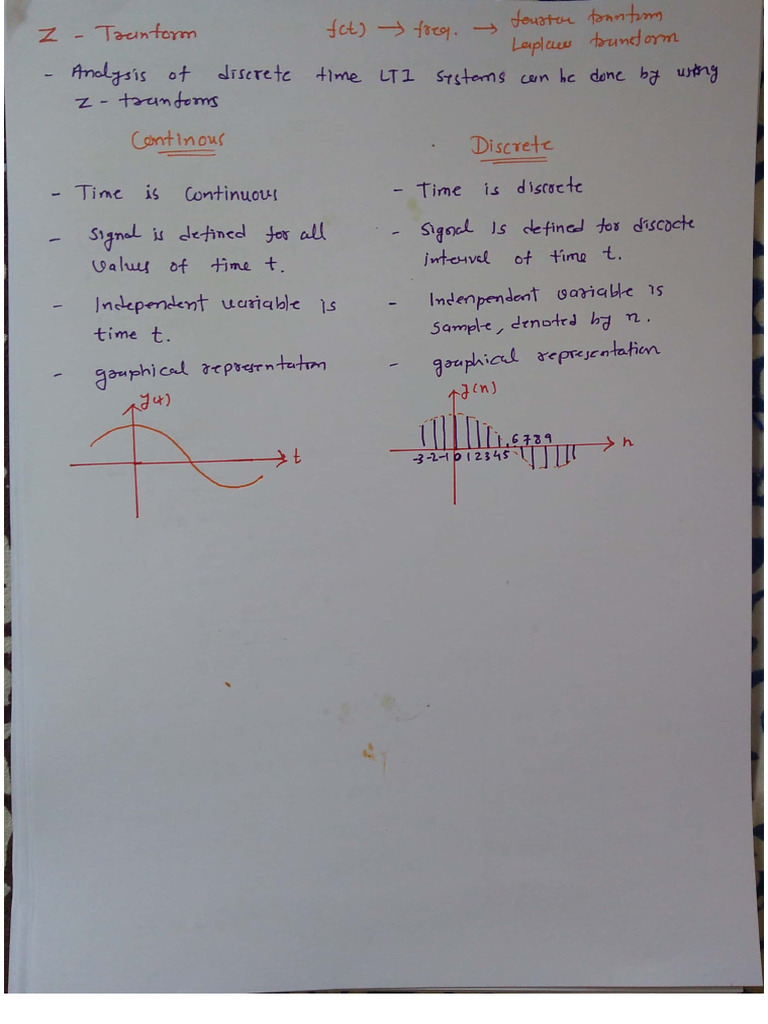 Z - Transform
f(t) → freq. → fourier transform
Laplace transform
- Analysis of discrete time LTI systems can be done by using
Z - transforms
Continous
- Time is continuous
- Signal is defined for all
values of time t.
- Independent variable is
time t.
- graphical representation
y(t)
t
Discrete
- Time is discrete
- Signal is defined for discrete
interval of time t.
- Indenpendent variable is
sample, denoted by n.
- graphical representation
y(n)
6 7 8 9
n
-3 -2 -1 0 1 2 3 4 5